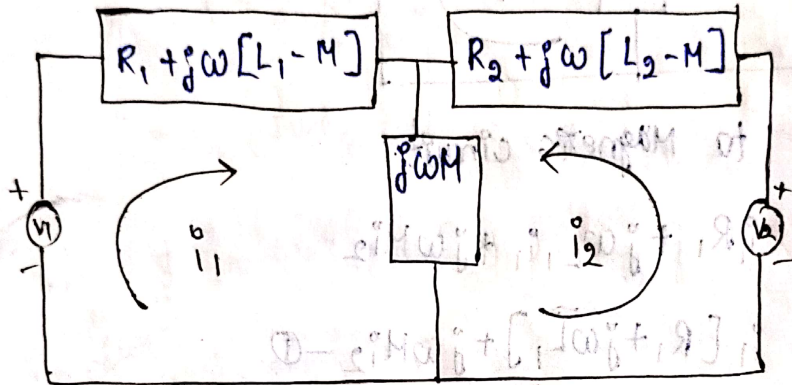 R₁ + jω[L₁ - M]
R₂ + jω[L₂ - M]
jωM
+
V₁
-
i₁
i₂
+
V₂
-